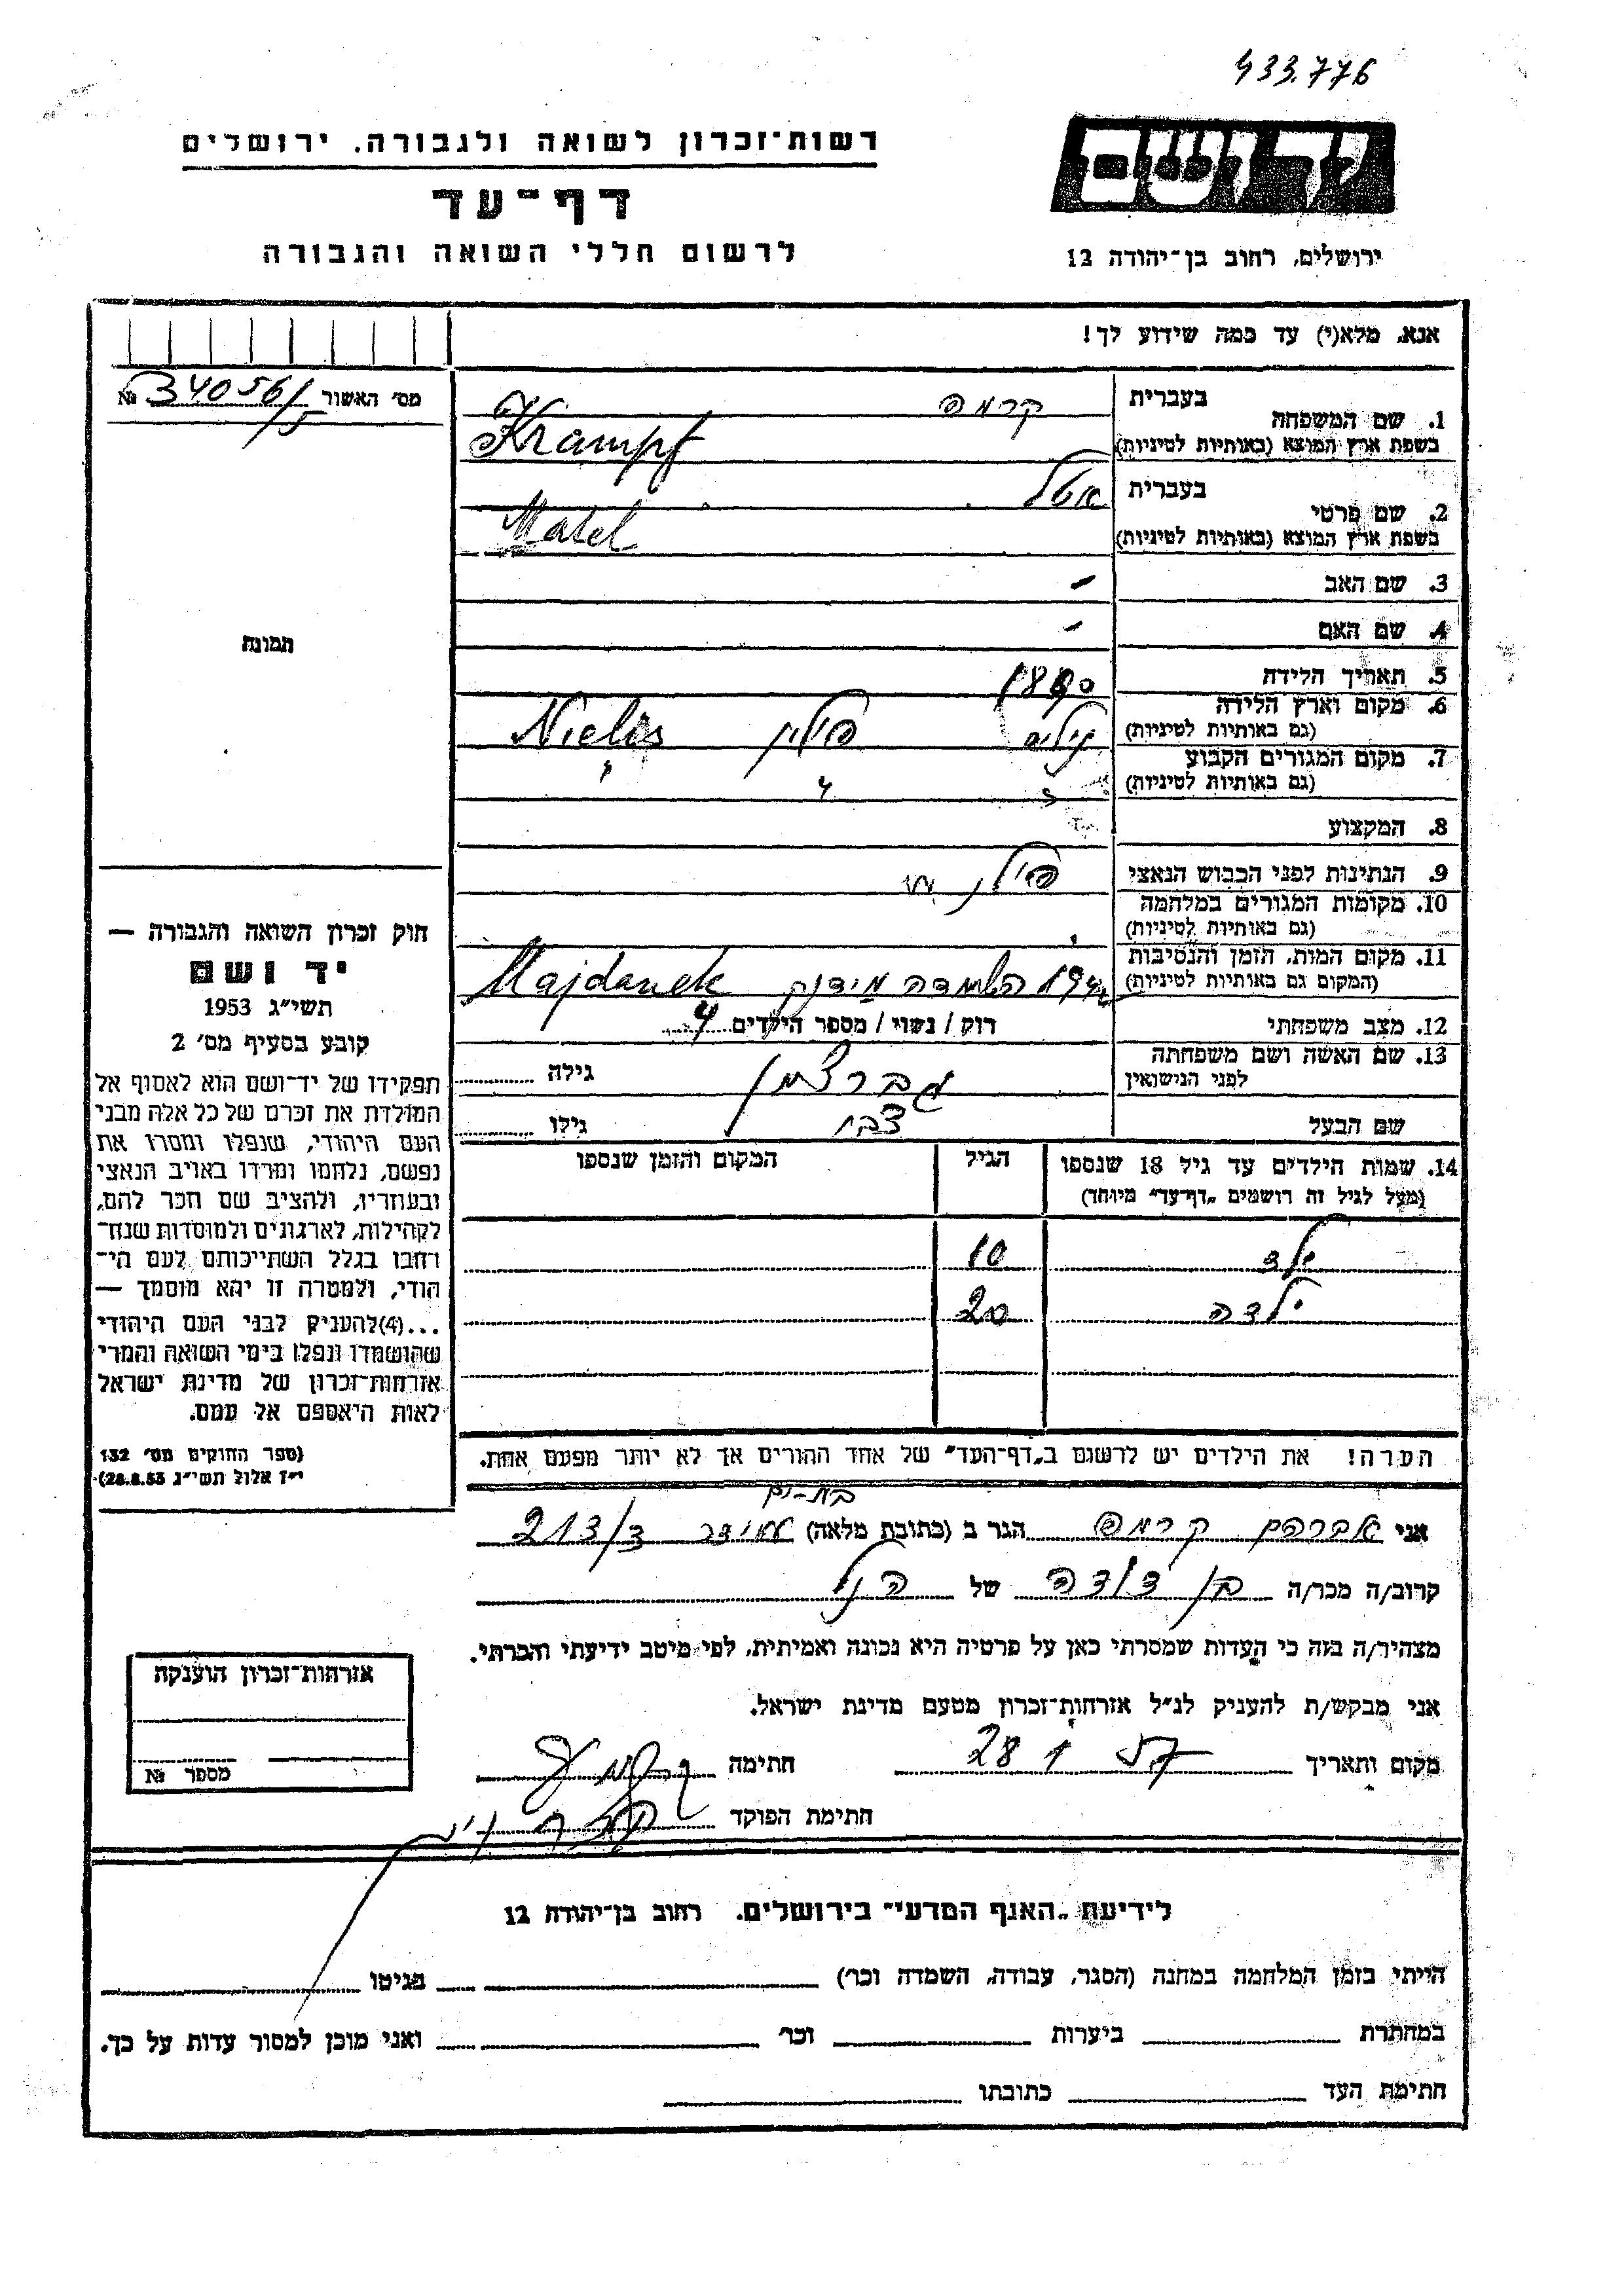 433.776
רשות־זכרון לשואה ולגבורה. ירושלים
דף־עד
לרשום חללי השואה והגבורה
ידושם
ירושלים, רחוב בן־יהודה 12
אנא, מלא(י) עד כמה שידוע לך!
מס׳ האשור 34056/5 №
תמונה
חוק זכרון השואה והגבורה —
יד ושם
תשי״ג 1953
קובע בסעיף מס׳ 2
תפקידו של יד־ושם הוא לאסוף אל
המולדת את זכרם של כל אלה מבני
העם היהודי, שנפלו ומסרו את
נפשם, נלחמו ומרדו באויב הנאצי
ובעוזריו, ולהציב שם וזכר להם,
לקהילות, לארגונים ולמוסדות שנח־
רחבו בגלל השתייכותם לעם הי־
הודי, ולמטרה זו יהא מוסמך —
...(4)להעניק לבני העם היהודי
שהושמדו ונפלו בימי השואה והמרי
אזרחות־זכרון של מדינת ישראל
לאות היאספם אל עמם.
(ספר החוקים מס׳ 132
י״ז אלול תשי״ג 28.8.53)
1. שם המשפחה בעברית קרמפ
בשפת ארץ המוצא (באותיות לטיניות) Krampf
2. שם פרטי בעברית
בשפת ארץ המוצא (באותיות לטיניות)
3. שם האב -
4. שם האם -
5. תאריך הלידה
6. מקום וארץ הלידה פולין
(גם באותיות לטיניות)
7. מקום המגורים הקבוע
(גם באותיות לטיניות)
8. המקצוע
9. הנתינות לפני הכבוש הנאצי
10. מקומות המגורים במלחמה
(גם באותיות לטיניות)
11. מקום המות, הזמן והנסיבות הושמדה מידנק Majdanek
(המקום גם באותיות לטיניות)
12. מצב משפחתי רוק / נשוי / מספר הילדים 4
13. שם האשה ושם משפחתה
לפני הנישואין גילה
שם הבעל גילו
14. שמות הילדים עד גיל 18 שנספו הגיל המקום והזמן שנספו
(מעל לגיל זה רושמים „דף־עד״ מיוחד)
ילד 10
ילדה 20
הערה! את הילדים יש לרשום ב„דף־העד״ של אחד ההורים אך לא יותר מפעם אחת.
בת-ים
אני אברהם קרמפ הגר ב (כתובת מלאה) עמידר 213/ד
קרוב/ה מכר/ה בן דודה של הנ״ל
מצהיר/ה בזה כי העדות שמסרתי כאן על פרטיה היא נכונה ואמיתית, לפי מיטב ידיעתי והכרתי.
אני מבקש/ת להעניק לנ״ל אזרחות־זכרון מטעם מדינת ישראל.
מקום ותאריך 28 1 57 חתימה
חתימת הפוקד
אזרחות־זכרון הוענקה
מספר №
לידיעת „האגף המדעי״ בירושלים. רחוב בן־יהודה 12
הייתי בזמן המלחמה במחנה (הסגר, עבודה, השמדה וכר׳) בגיטו
במחתרת ביערות וכר׳ ואני מוכן למסור עדות על כך.
חתימת העד כתובתו